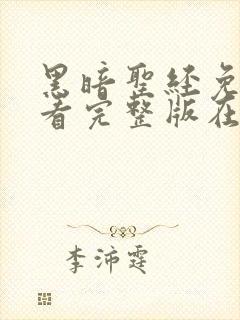 黑暗聖经免
看完整版在
李沛霆